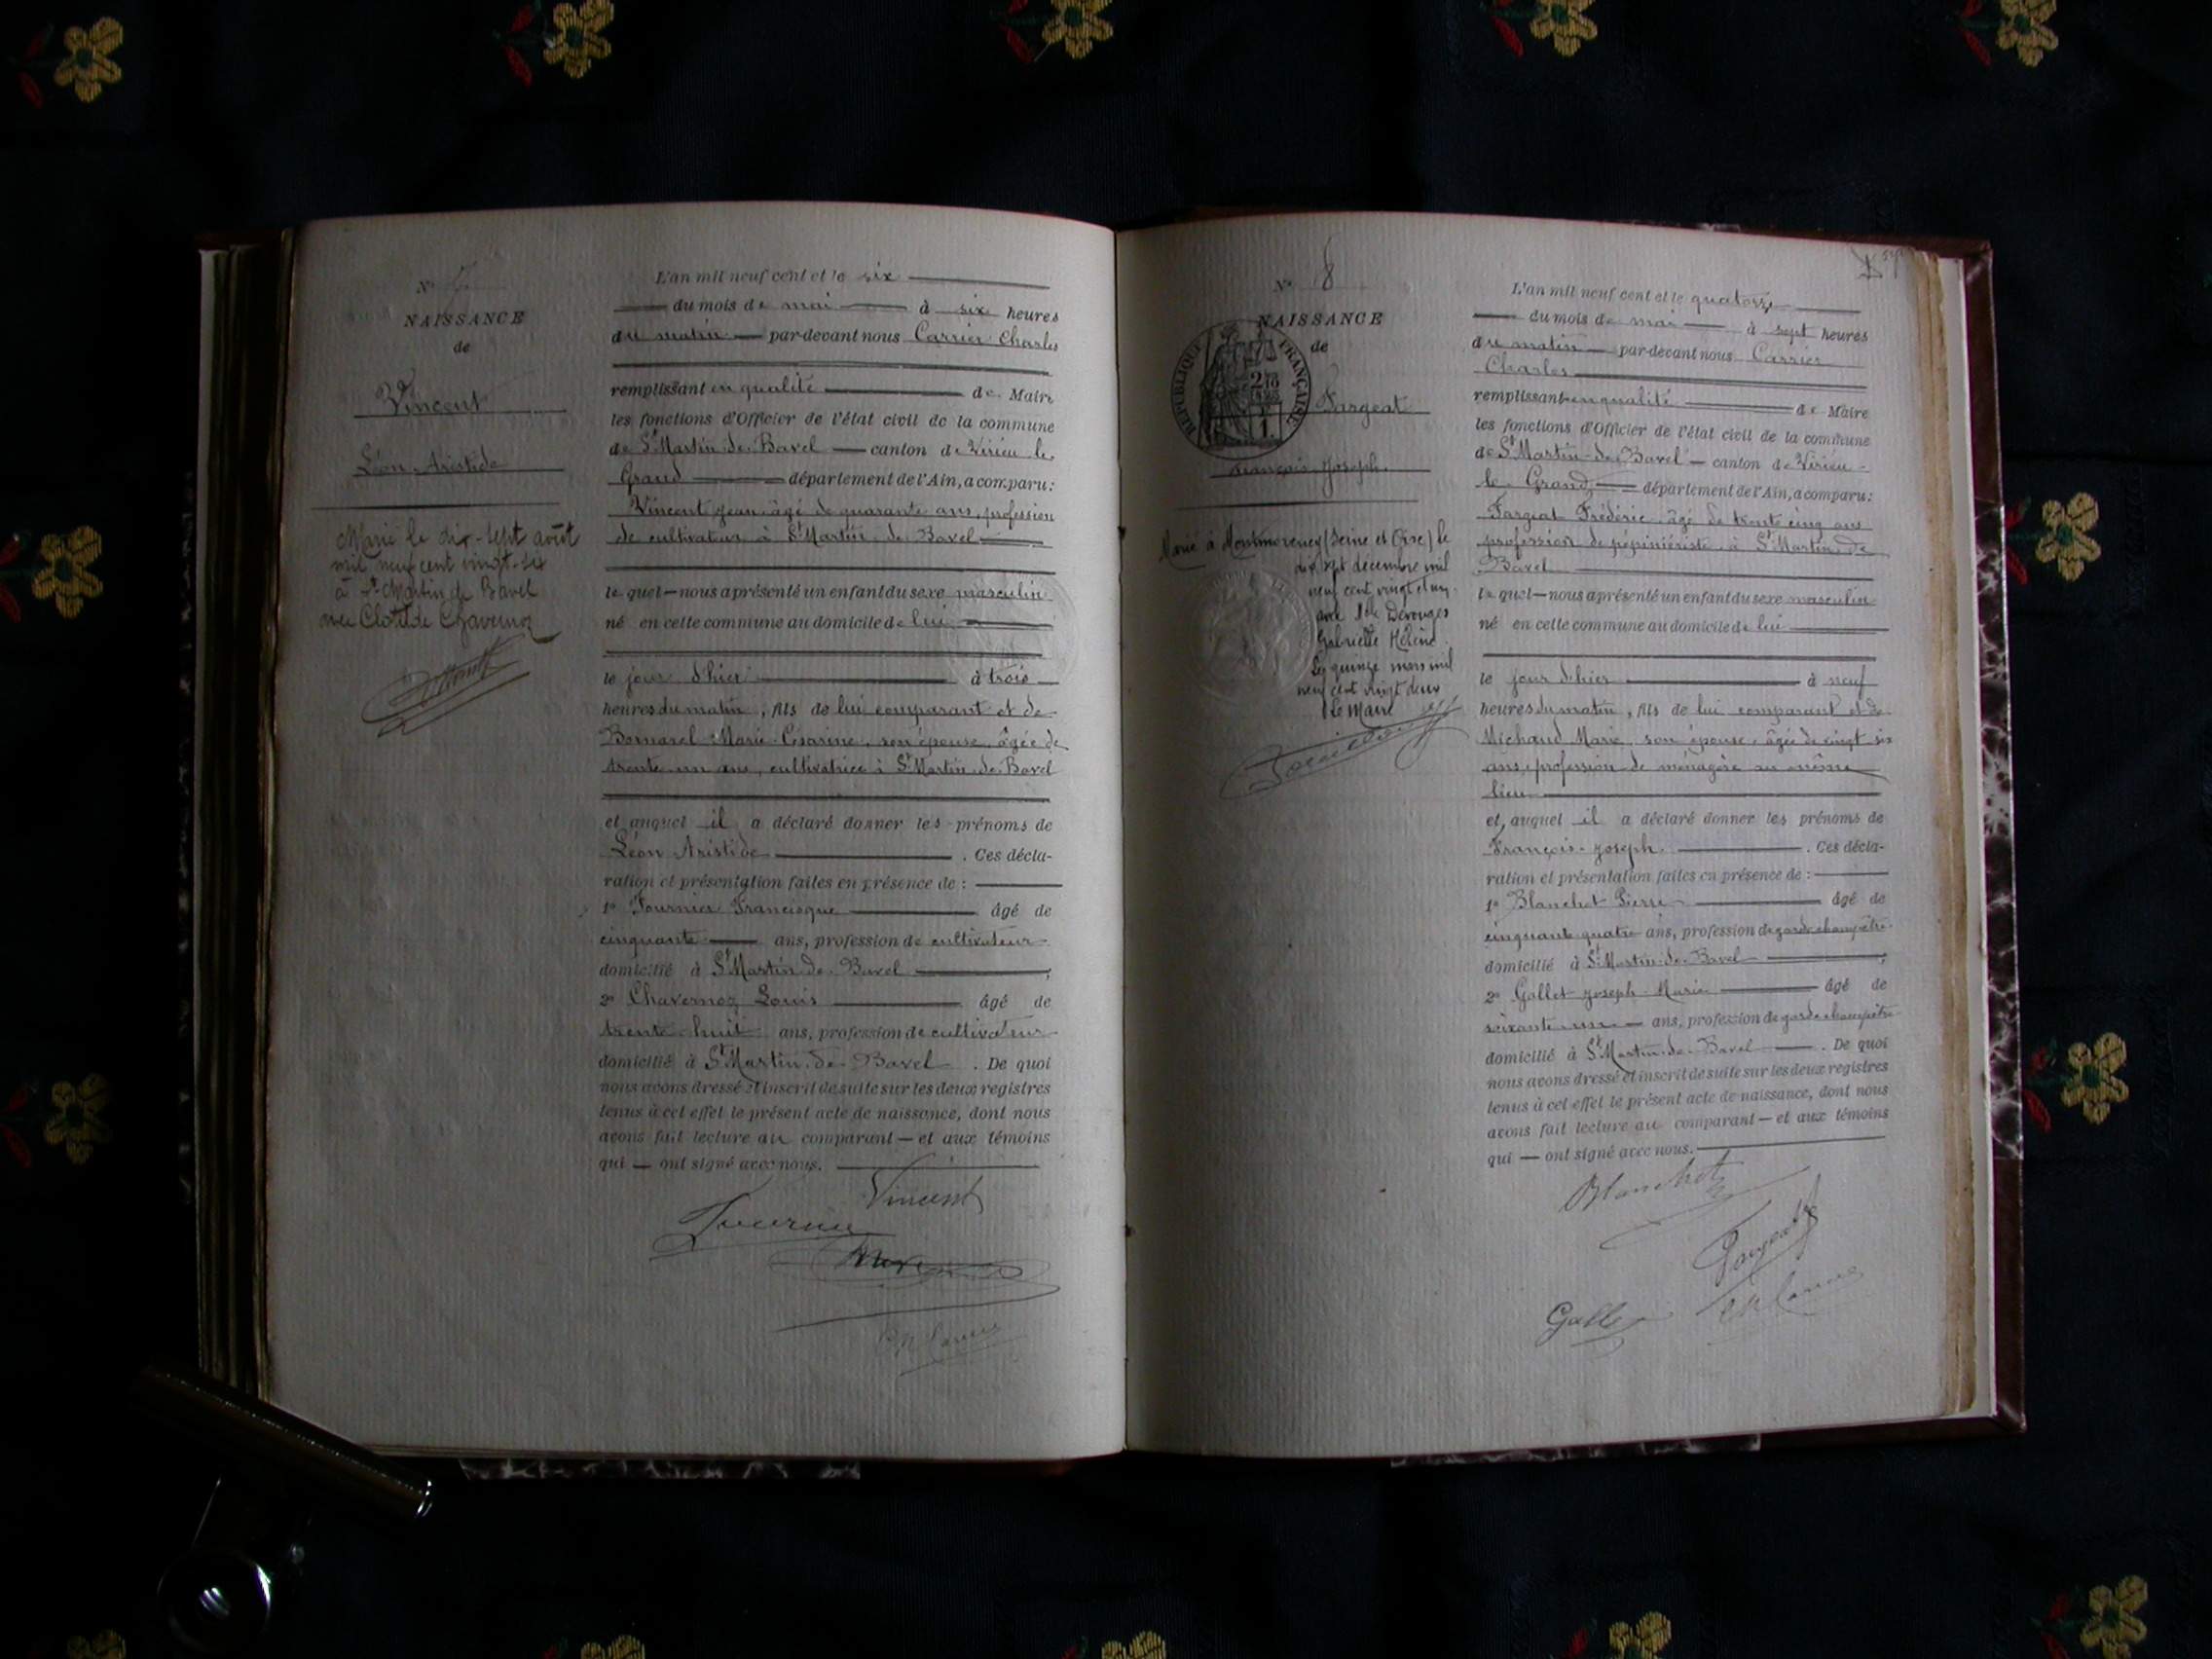 N° 7
NAISSANCE
de
Vincent
Léon Aristide
Marié le dix-sept août
mil neuf cent vingt-six
à St Martin de Bavel
avec Clotilde Chavernoz
L'an mil neuf cent et le six
du mois de mai à six heures
du matin par-devant nous Carrier Charles
remplissant en qualité de Maire
les fonctions d'Officier de l'état civil de la commune
de St Martin-de-Bavel canton de Virieu-le-
Grand département de l'Ain, a comparu :
Vincent Jean, âgé de quarante ans, profession
de cultivateur à St Martin-de-Bavel
lequel nous a présenté un enfant du sexe masculin
né en cette commune au domicile de lui
le jour d'hier à trois
heures du matin, fils de lui comparant et de
Bornarel Marie Césarine, son épouse, âgée de
trente un ans, cultivatrice à St Martin-de-Bavel
et auquel il a déclaré donner les prénoms de
Léon Aristide. Ces décla-
ration et présentation faites en présence de :
1° Fournier Francisque âgé de
cinquante ans, profession de cultivateur
domicilié à St Martin-de-Bavel ;
2° Chavernoz Louis âgé de
trente-huit ans, profession de cultivateur
domicilié à St Martin-de-Bavel. De quoi
nous avons dressé et inscrit de suite sur les deux registres
tenus à cet effet le présent acte de naissance, dont nous
avons fait lecture au comparant et aux témoins
qui ont signé avec nous.
Vincent
Fournier
N° 8
NAISSANCE
de
RÉPUBLIQUE FRANÇAISE
Fargeat
François Joseph
Marié à Montmorency (Seine et Oise) le
dix sept décembre mil
neuf cent vingt et un
avec Mlle Derouges
Gabrielle Hélène
Le quinze mars mil
neuf cent vingt deux
Le Maire
L'an mil neuf cent et le quatorze
du mois de mai à sept heures
du matin par-devant nous Carrier
Charles
remplissant en qualité de Maire
les fonctions d'Officier de l'état civil de la commune
de St Martin-de-Bavel canton de Virieu-
le-Grand département de l'Ain, a comparu :
Fargeat Frédéric, âgé de trente cinq ans
profession de pépiniériste, à St Martin-de
Bavel
lequel nous a présenté un enfant du sexe masculin
né en cette commune au domicile de lui
le jour d'hier à neuf
heures du matin, fils de lui comparant et de
Michaud Marie, son épouse, âgée de vingt six
ans, profession de ménagère au même
lieu
et auquel il a déclaré donner les prénoms de
François-Joseph. Ces décla-
ration et présentation faites en présence de :
1° Blanchet Pierre âgé de
cinquante quatre ans, profession de garde champêtre
domicilié à St Martin-de-Bavel ;
2° Gallet Joseph-Marie âgé de
soixante un ans, profession de garde champêtre
domicilié à St Martin-de-Bavel. De quoi
nous avons dressé et inscrit de suite sur les deux registres
tenus à cet effet le présent acte de naissance, dont nous
avons fait lecture au comparant et aux témoins
qui ont signé avec nous.
Blanchet
Fargeat
Gallet